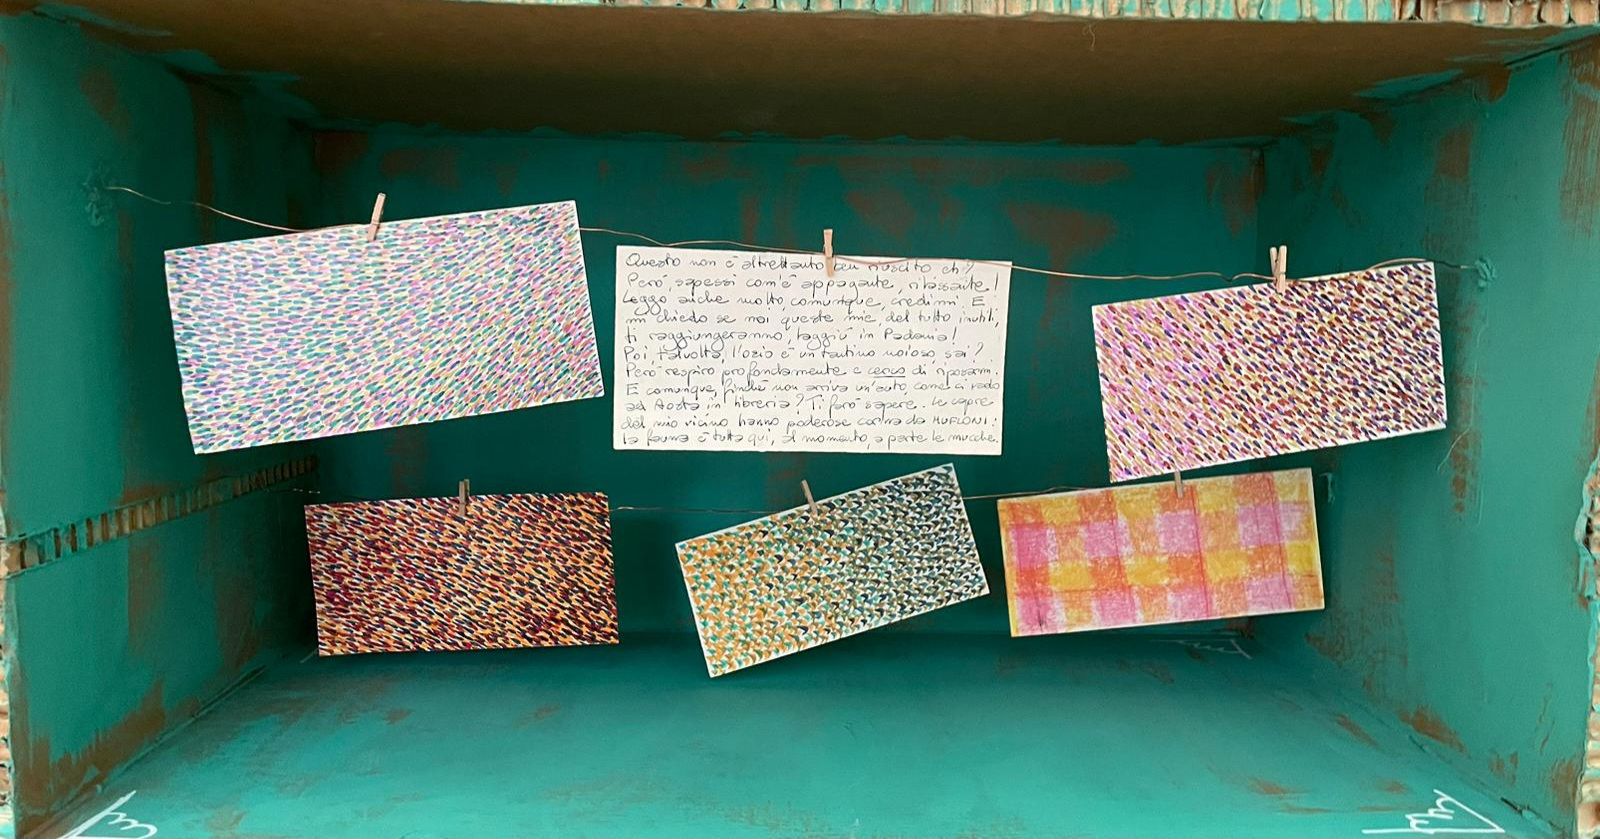 Questo non è altrettanto ben riuscito, eh?
Però, sapessi com'è appagante, rilassante!
Leggo anche molto, comunque, credimi. E
mi chiedo se mai queste mie, del tutto inutili,
ti raggiungeranno, laggiù in Padania!
Poi, talvolta, l'ozio è un tantino noioso, sai?
Però respiro profondamente e cerco di riposarmi.
E comunque, finché non arriva un'auto, come ci vado
ad Aosta in libreria? Ti farò sapere. Le capre
del mio vicino hanno poderose corna da MUFLONI:
la fauna è tutta qui, al momento, a parte le mucche.